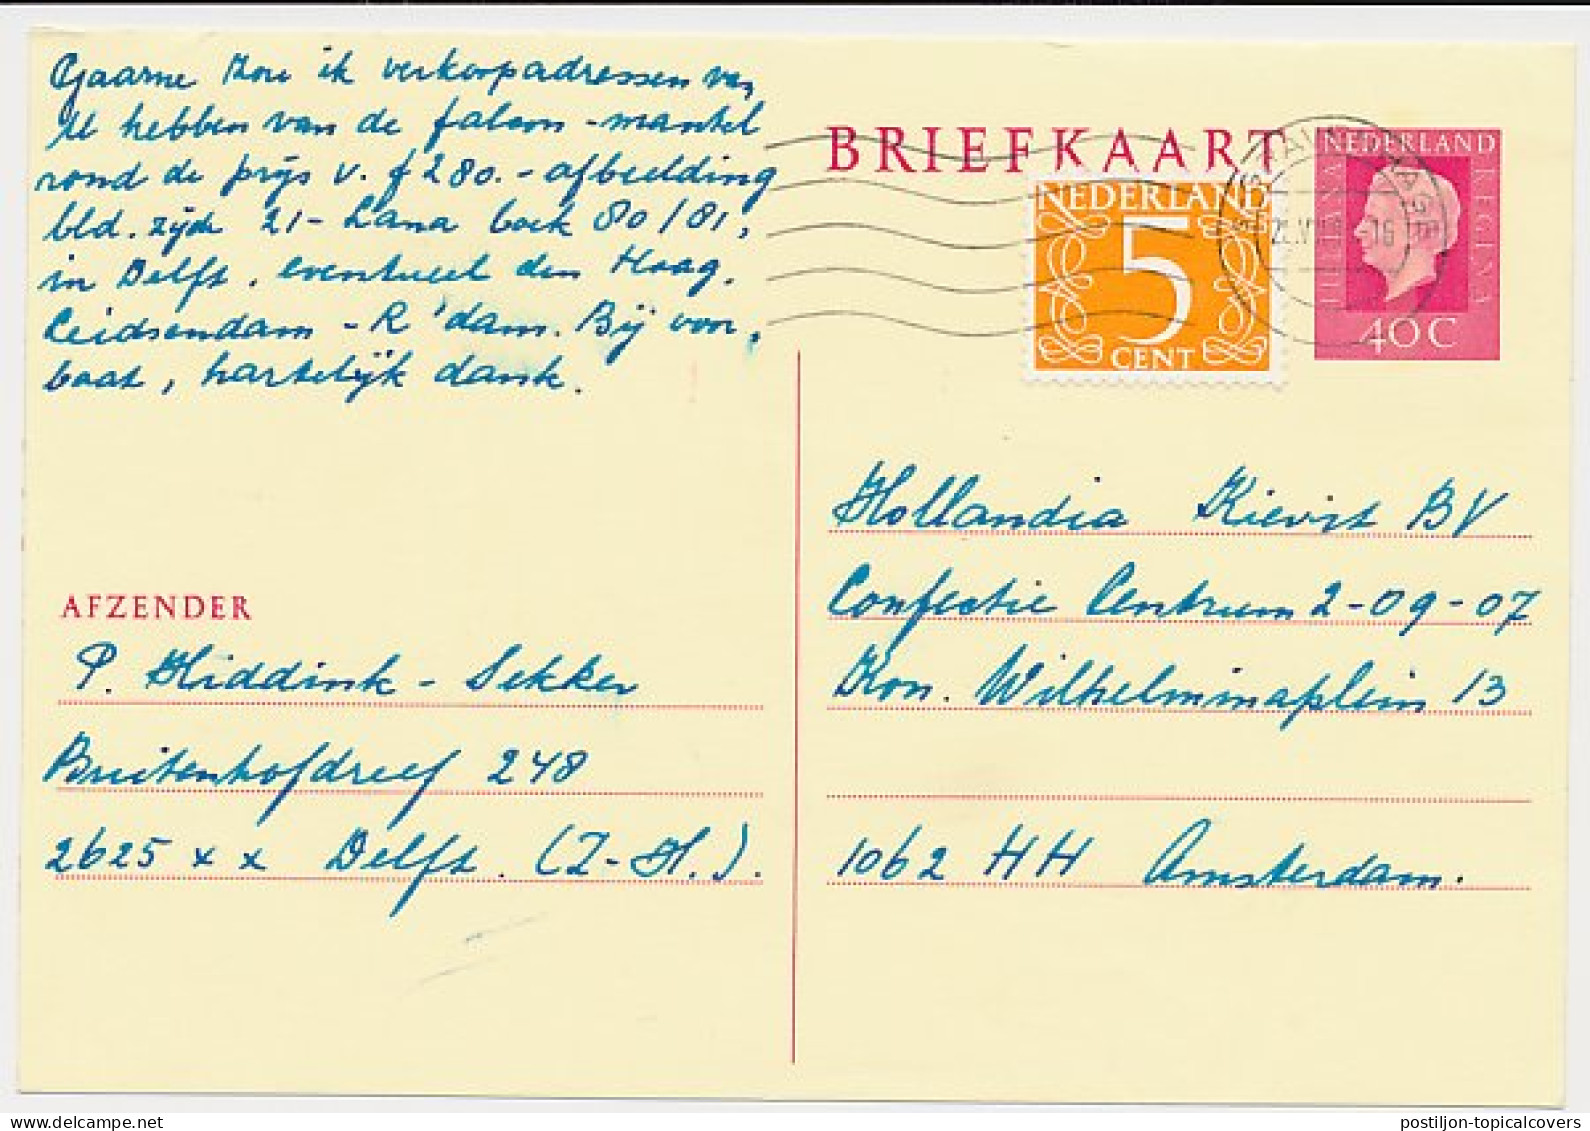 Gaarne zou ik verkoopadressen van
U hebben van de falcon-mantel
rond de prijs v. f 280.- afbeelding
bld. zijde 21 - Lana boek 80/81,
in Delft, eventueel den Haag,
Leidsendam - R'dam. Bij voor,
baat, hartelijk dank.
BRIEFKAART
NEDERLAND
5
CENT
NEDERLAND
JULIANA
REGINA
40 C
16
Hollandia Kievit BV
Confectie Centrum 2-09-07
Kon. Wilhelminaplein 13
1062 HH Amsterdam.
AFZENDER
P. Hiddink - Sekker
Buitenhofdreef 248
2625 x x Delft. (Z-H.).
postiljon-topicalcovers